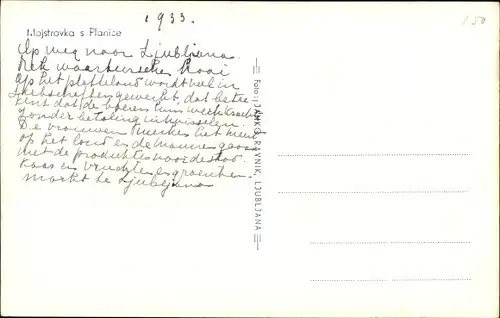 1933.
1.50
Mojstrovka s Planice
Op weg naar Ljubljana.
Op het platteland wordt veel in
gewerkt, dat bete-
kent dat de boeren hun werkkracht
zonder betaling uitwisselen.
De vrouwen werken het meest
op het land en de mannen gaan
met de produkten naar de stad
Kaas en vruchten en groenten-
markt te Ljubljana
Foto: JANKO RAVNIK, LJUBLJANA